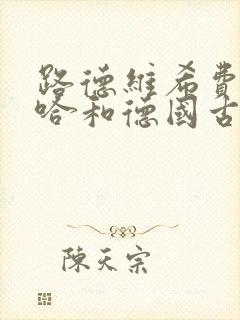 路德維希費
哈和德國古
陳天宗